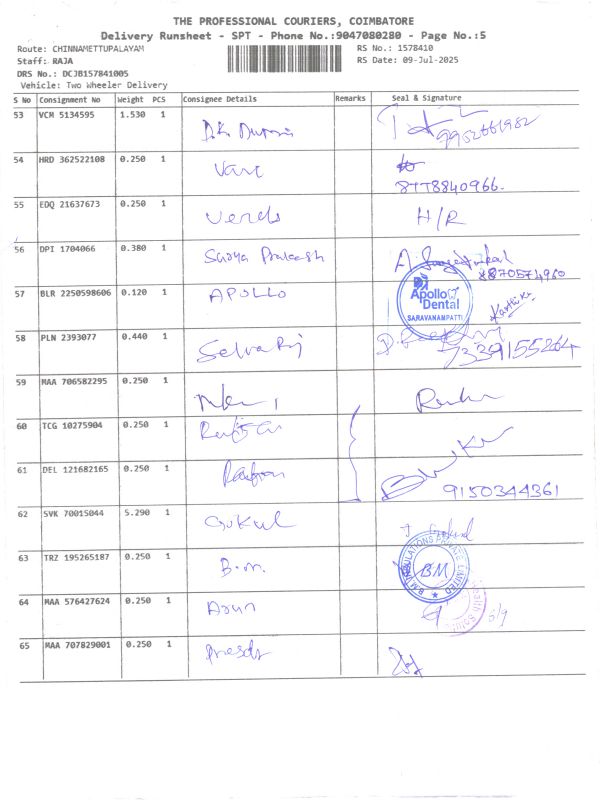 THE PROFESSIONAL COURIERS, COIMBATORE
Delivery Runsheet - SPT - Phone No.:9047080280 - Page No.:5
Route: CHINNAMETTUPALAYAM RS No.: 1578410
Staff: RAJA RS Date: 09-Jul-2025
DRS No.: DCJB157841005
Vehicle: Two Wheeler Delivery
S No Consignment No Weight PCS Consignee Details Remarks Seal & Signature
53 VCM 5134595 1.530 1
9952661982
54 HRD 362522108 0.250 1
8778840966.
55 EDQ 21637673 0.250 1 H/R
56 DPI 1704066 0.380 1 Surya Prakash
8870574960
57 BLR 2250598606 0.120 1 APOLLO Apollo Dental SARAVANAMPATTI Karthika
58 PLN 2393077 0.440 1 Selva Raj 7339155264
59 MAA 706582295 0.250 1
60 TCG 10275904 0.250 1
61 DEL 121682165 0.250 1
9150344361
62 SVK 70015044 5.290 1 Gokul J Gokul
63 TRZ 195265187 0.250 1 B.M. B.M INSULATIONS PRIVATE LIMITED BM
64 MAA 576427624 0.250 1 Arun
65 MAA 707829001 0.250 1